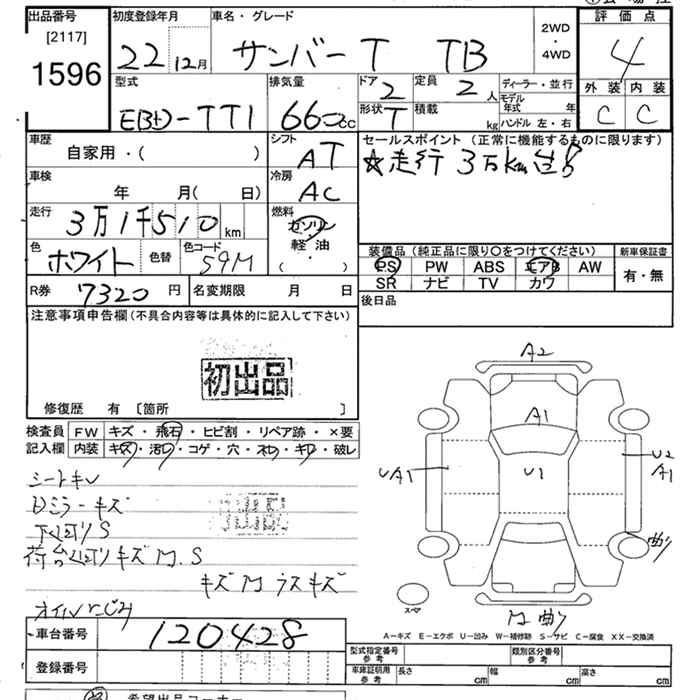 出品番号
[2117]
1596
初度登録年月
22 12月
車名・グレード
サンバーT TB
2WD
・
4WD
評価点
4
外装 内装
C C
型式
EBD-TT1
排気量
660cc
ドア
2
定員
2人
形状
T
積載
kg
ディーラー・並行
モデル年式 年
ハンドル 左・右
車歴
自家用・( )
シフト
AT
セールスポイント (正常に機能するものに限ります)
☆走行 3万km台!!
車検
年 月( 日)
冷房
AC
走行
3万1千510km
燃料
ガソリン
軽油
( ・ )
色
ホワイト
色替
色コード
59M
装備品 (純正品に限り○をつけてください)
新車保証書
PS PW ABS エアB AW
SR ナビ TV カワ
有・無
R券
7320円
名変期限 月 日
後日品
注意事項申告欄 (不具合内容等は具体的に記入して下さい)
初出品
修復歴 有 [箇所 ]
検査員 FW キズ・飛石・ヒビ割・リペア跡・×要
記入欄 内装 キズ・汚レ・コゲ・穴・オレ・キレ・破レ
シートキレ
Dミラーキズ
下廻りS
荷台廻りキズ凹.S
キズ凹ラスキズ
オイルにじみ
初出品
A2
A1
U1
UA1
U2
A1
曲り
スペア
凹 曲り
A－キズ E－エクボ U－凹み W－補修跡 S－サビ C－腐食 XX－交換済
車台番号
120428
登録番号
型式指定番号
参考
類別区分番号
参考
車庫証明用
参考
長さ cm
幅 cm
高さ cm
希望出品コーナー